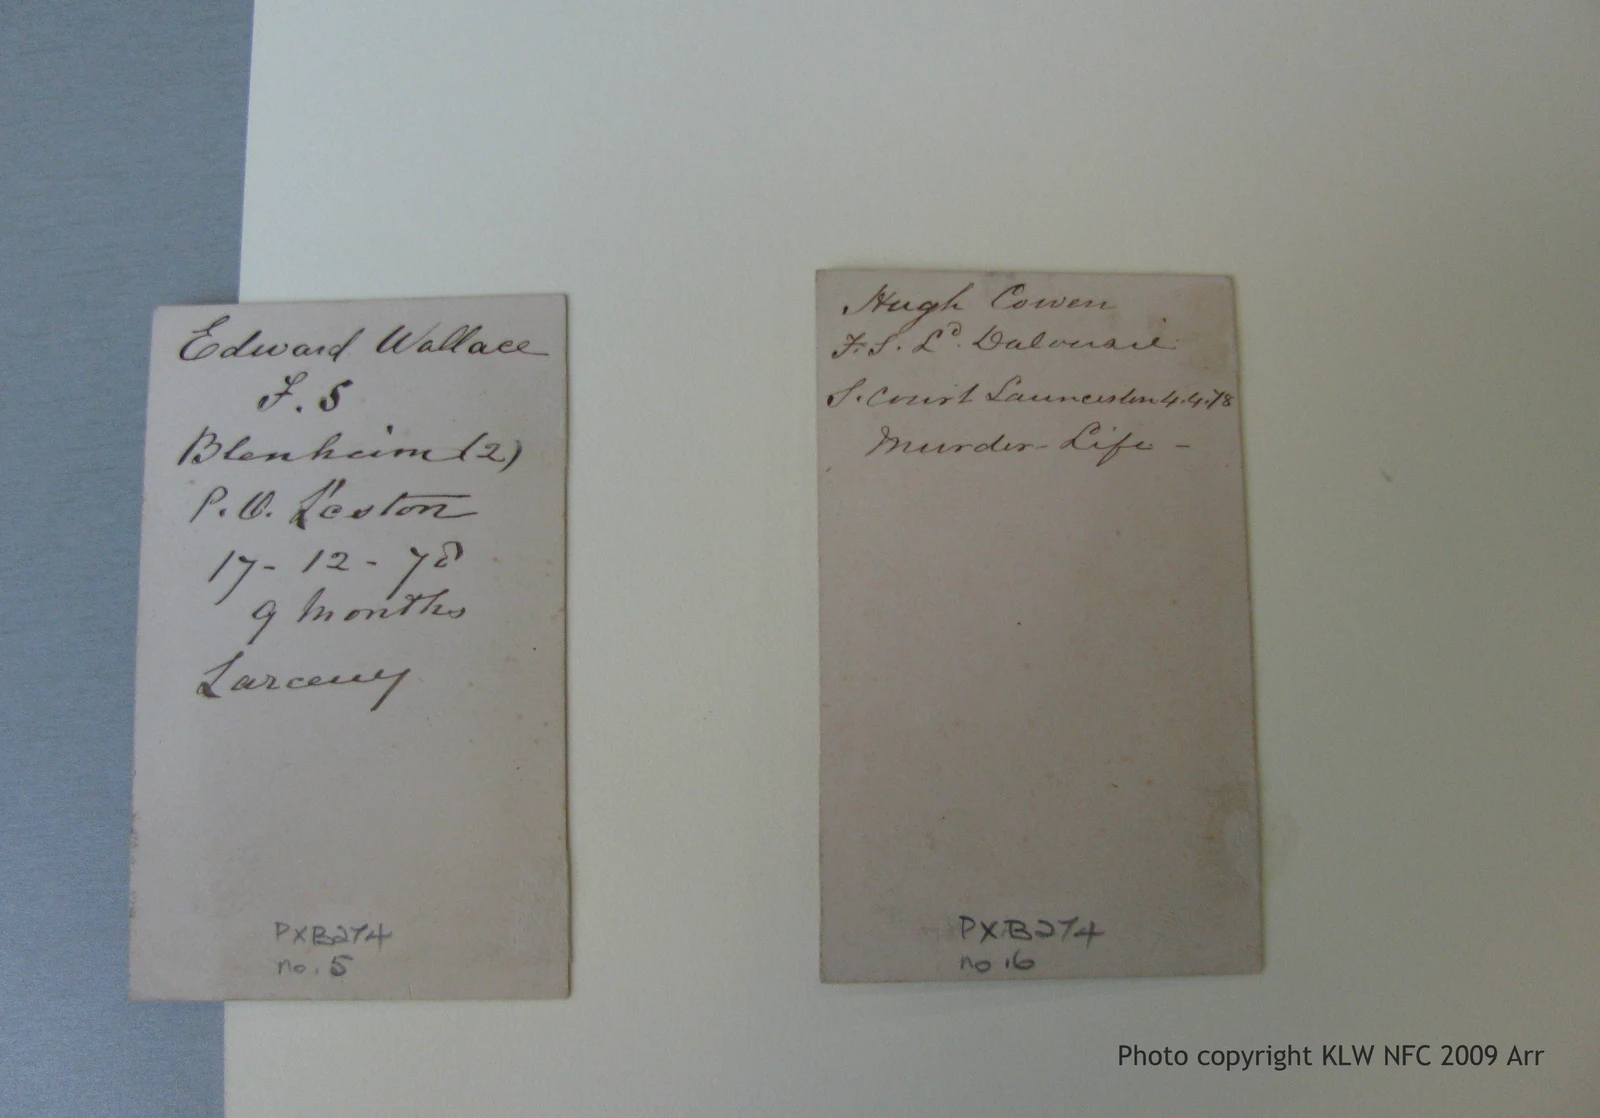 Edward Wallace
F. S
Blenheim (2)
P. O. L'eston
17 - 12 - 78
9 Months
Larceny
PXB274
no. 5
Hugh Cowen
F. S. Ld. Dalousie
S. Court Launceston 4.4.78
Murder - Life -
PXB274
no 16
Photo copyright KLW NFC 2009 Arr